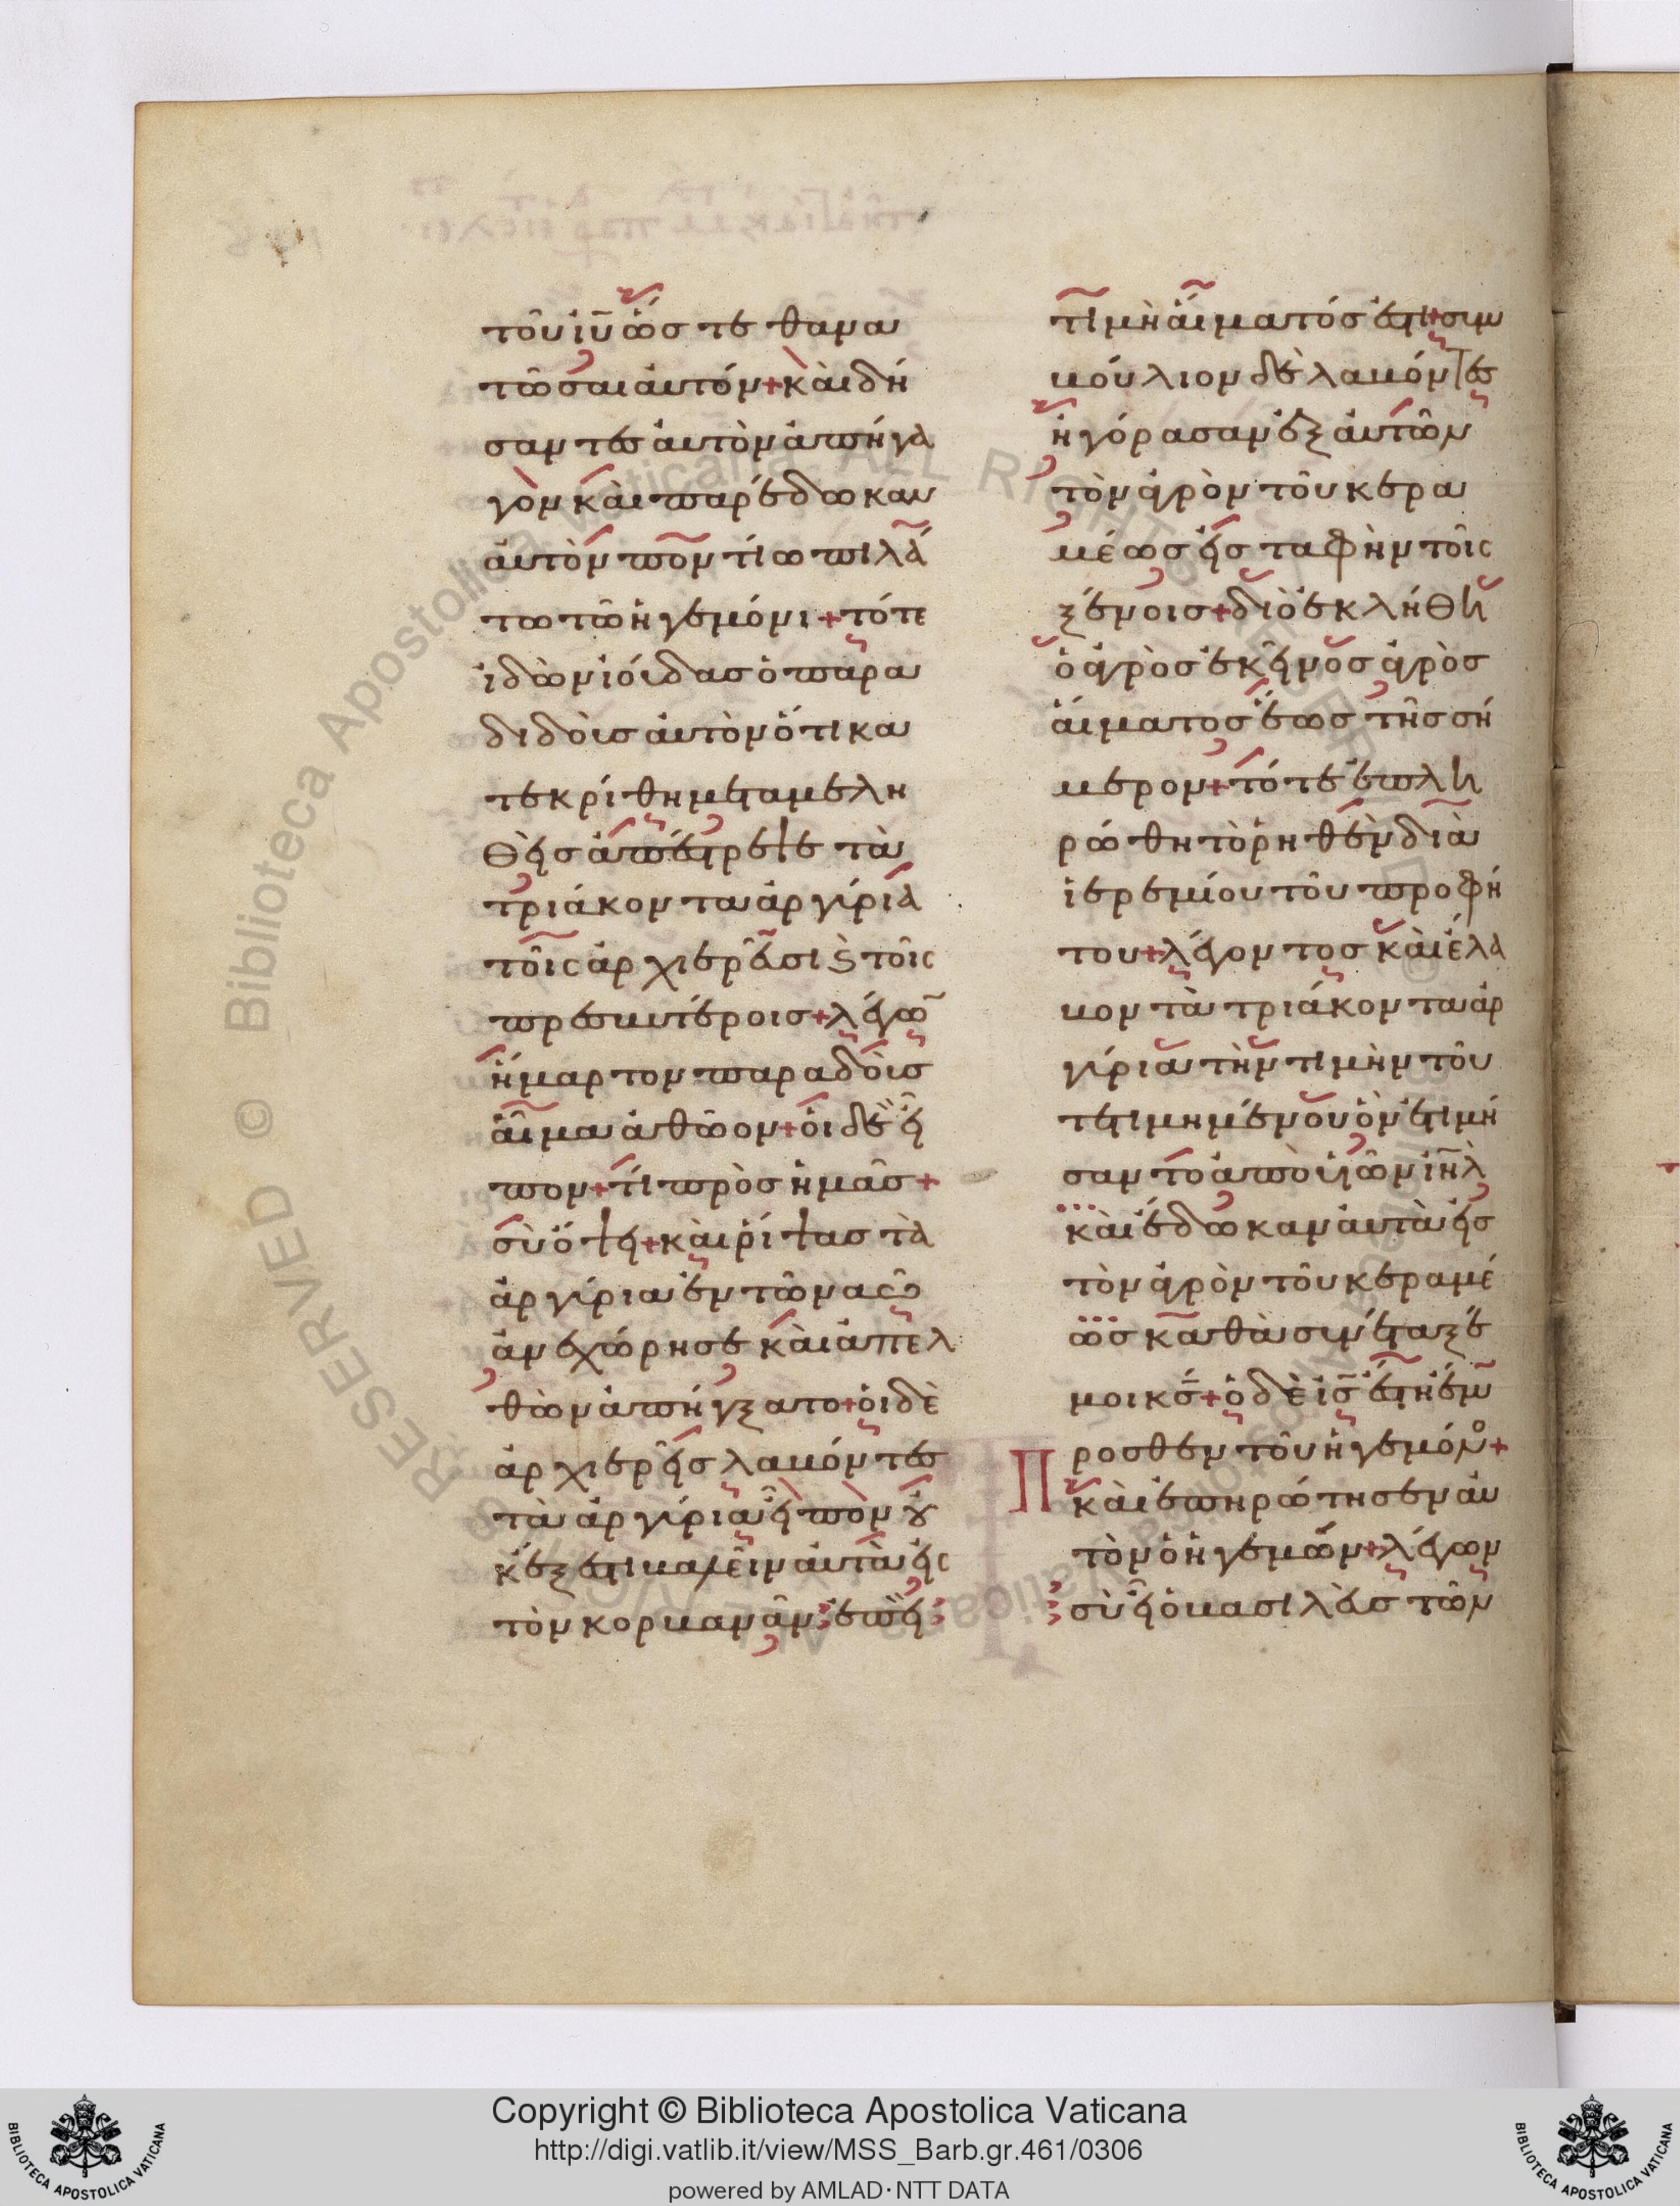 τοῦ ἰῦ ὥστε θανα
τῶσαι ἀυτόν + κὰι δή
σαντες ἀυτὸν ἀπήγα
γον κὰι παρέδωκαν
ἀυτὸν ποντίω πιλά
τω τῶ ἡγεμόνι + τότε
ἰδὼν ἰούδας ὁ παρα
διδοὺς ἀυτὸν ὅτι κα
τεκρίθη μεταμελη
θεὶς ἀπέστρεψε τὰ
τριάκοντα ἀργύρια
τοῖς ἀρχιερεῦσι ϗ τοῖς
πρεσβυτέροις + λέγω̅
ἥμαρτον παραδοὺς
ἇιμα ἀθῶον + ὁι δὲ εἶ
πον + τί πρὸς ἡμᾶς +
σὺ ὄψει + κὰι ῥίψας τὰ
ἀργύρια ἐν τῶ ναῶ
ἀνεχώρησε κὰι ἀπελ
θὼν ἀπήγξατο + ὁι δὲ
ἀρχιερεῖς λαβόντες
τὰ ἀργύρια εἶπον οὐ
κ ἔξεστι βαλεῖν ἀυτὰ εἰς
τὸν κορβανᾶν ἐπεὶ
τιμὴ ἅιματός ἐστι + συμ
βούλιον δὲ λαβόντες
ἠγόρασαν ἐξ ἀυτῶν
τὸν ἀγρὸν τοῦ κερα
μέως εἰς ταφὴν τοῖς
ξένοις + διὸ ἐκλήθη
ὁ ἀγρὸς ἐκεῖνος ἀγρὸς
ἅιματος ἕως τῆς σή
μερον + τότε ἐπλη
ρώθη τὸ ῥηθὲν διὰ
ἱερεμίου τοῦ προφή
του + λέγοντος κὰι ἔλα
βον τὰ τριάκοντα ἀρ
γύρια τὴν τιμὴν τοῦ
τετιμημένου ὃν ἐτιμή
σαντο ἀπὸ υἱῶν ἰηλ
κὰι ἔδωκαν ἀυτὰ εἰς
τὸν ἀγρὸν τοῦ κεραμέ
ως καθὰ συνέταξέ
μοι κς + ὁ δὲ ἰς ἔστη ἔμ
προσθεν τοῦ ἡγεμόνο +
κὰι ἐπηρώτησεν ἀυ
τὸν ὁ ἡγεμών + λέγων
σὺ εἶ ὁ βασιλεὺς τῶν
Copyright © Biblioteca Apostolica Vaticana
http://digi.vatlib.it/view/MSS_Barb.gr.461/0306
powered by AMLAD·NTT DATA